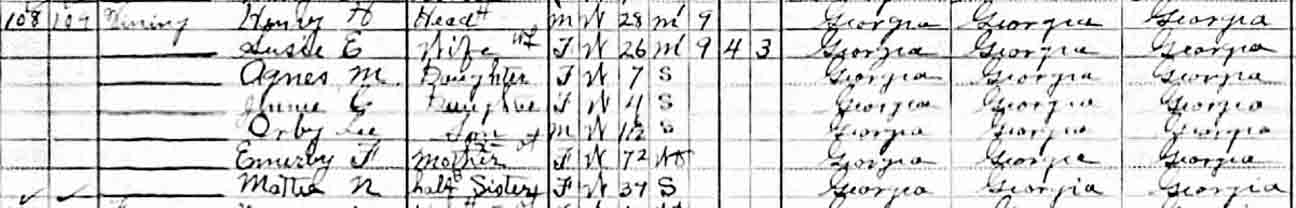 108 109 Vining Henry H Head M W 28 M 9 Georgia Georgia Georgia
Susie E Wife F W 26 M 9 4 3 Georgia Georgia Georgia
Agnes M Daughter F W 7 S Georgia Georgia Georgia
E Daughter F W 4 S Georgia Georgia Georgia
Orby Lee Son M W S Georgia Georgia Georgia
F Mother F W 72 Wd Georgia Georgia Georgia
Mattie N half Sister F W 37 S Georgia Georgia Georgia